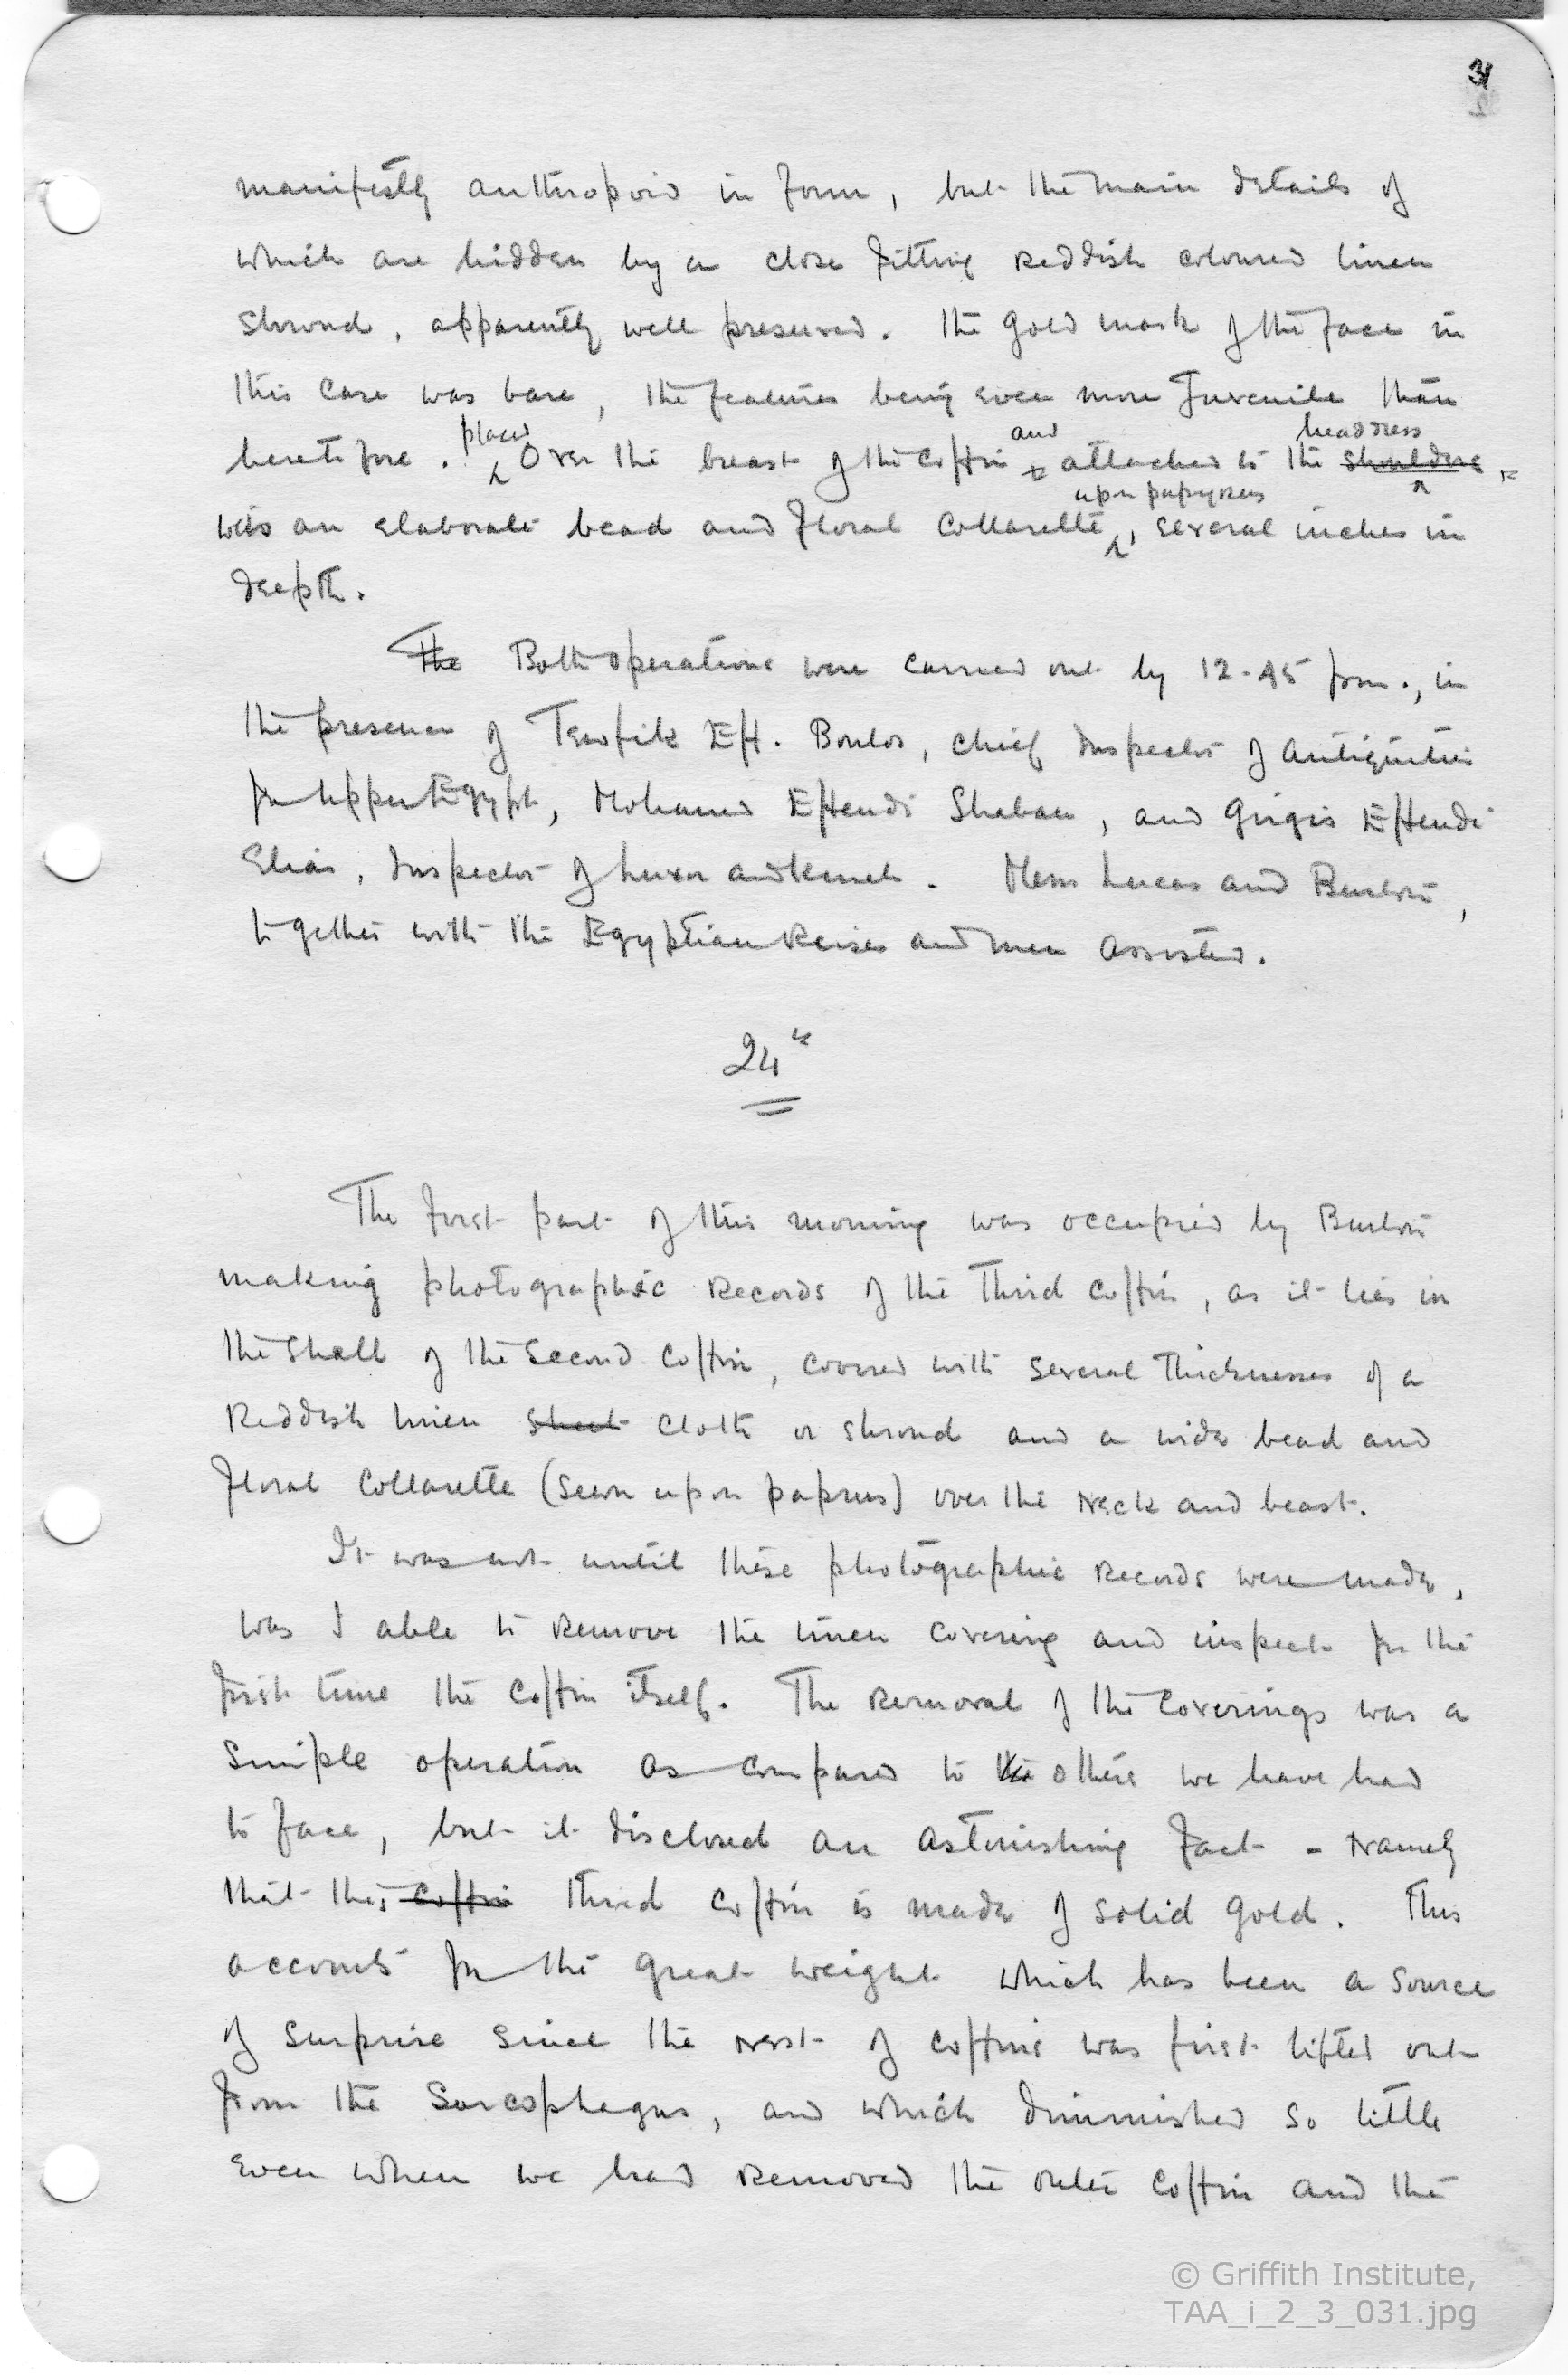 31
manifestly anthropoid in form, but the main details of
which are hidden by a close fitting reddish coloured linen
shroud, apparently well preserved. The gold mask of the face in
this case was bare, the features being even more juvenile than
placed and headdress
heretofore. Over the breast of the coffin attached to the shoulders,
upon papyrus
was an elaborate bead and floral collarette, several inches in
depth.
The Both operations were carried out by 12-45 pm., in
the presence of Tewfik Eff. Boulos, Chief Inspector of Antiquities
for Upper Egypt, Mohamed Effendi Shaban, and Girgis Effendi
Elias, Inspector of Luxor and Keneh. Mess Lucas and Burton,
together with the Egyptian Reises and men assisted.
24th
The first part of this morning was occupied by Burton
making photographic records of the third coffin, as it lies in
the shell of the second coffin, covered with several thicknesses of a
reddish linen sheet cloth or shroud and a wide bead and
floral collarette (sewn upon paprus) over the neck and beast.
It was not until these photographic records were made,
was I able to remove the linen covering and inspect for the
first time the coffin itself. The removal of the coverings was a
simple operation as compared to the others we have had
to face, but it disclosed an astonishing fact - namely
that this coffin third coffin is made of solid gold. This
accounts for the great weight which has been a source
of surprise since the nest of coffins was first lifted out
from the Sarcophagus, and which diminished so little
even when we had removed the outer coffin and the
© Griffith Institute,
TAA_i_2_3_031.jpg